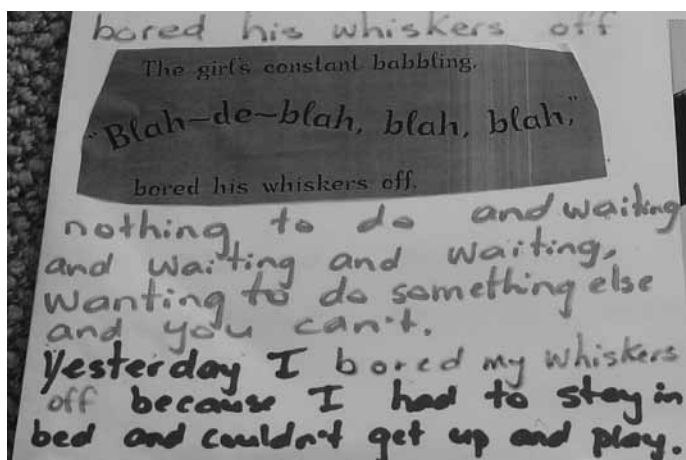 bored his whiskers off
The girl's constant babbling,
"Blah-de-blah, blah, blah,"
bored his whiskers off.
nothing to do and waiting
and waiting and waiting,
wanting to do something else
and you can't.
Yesterday I bored my whiskers
off because I had to stay in
bed and couldn't get up and play.